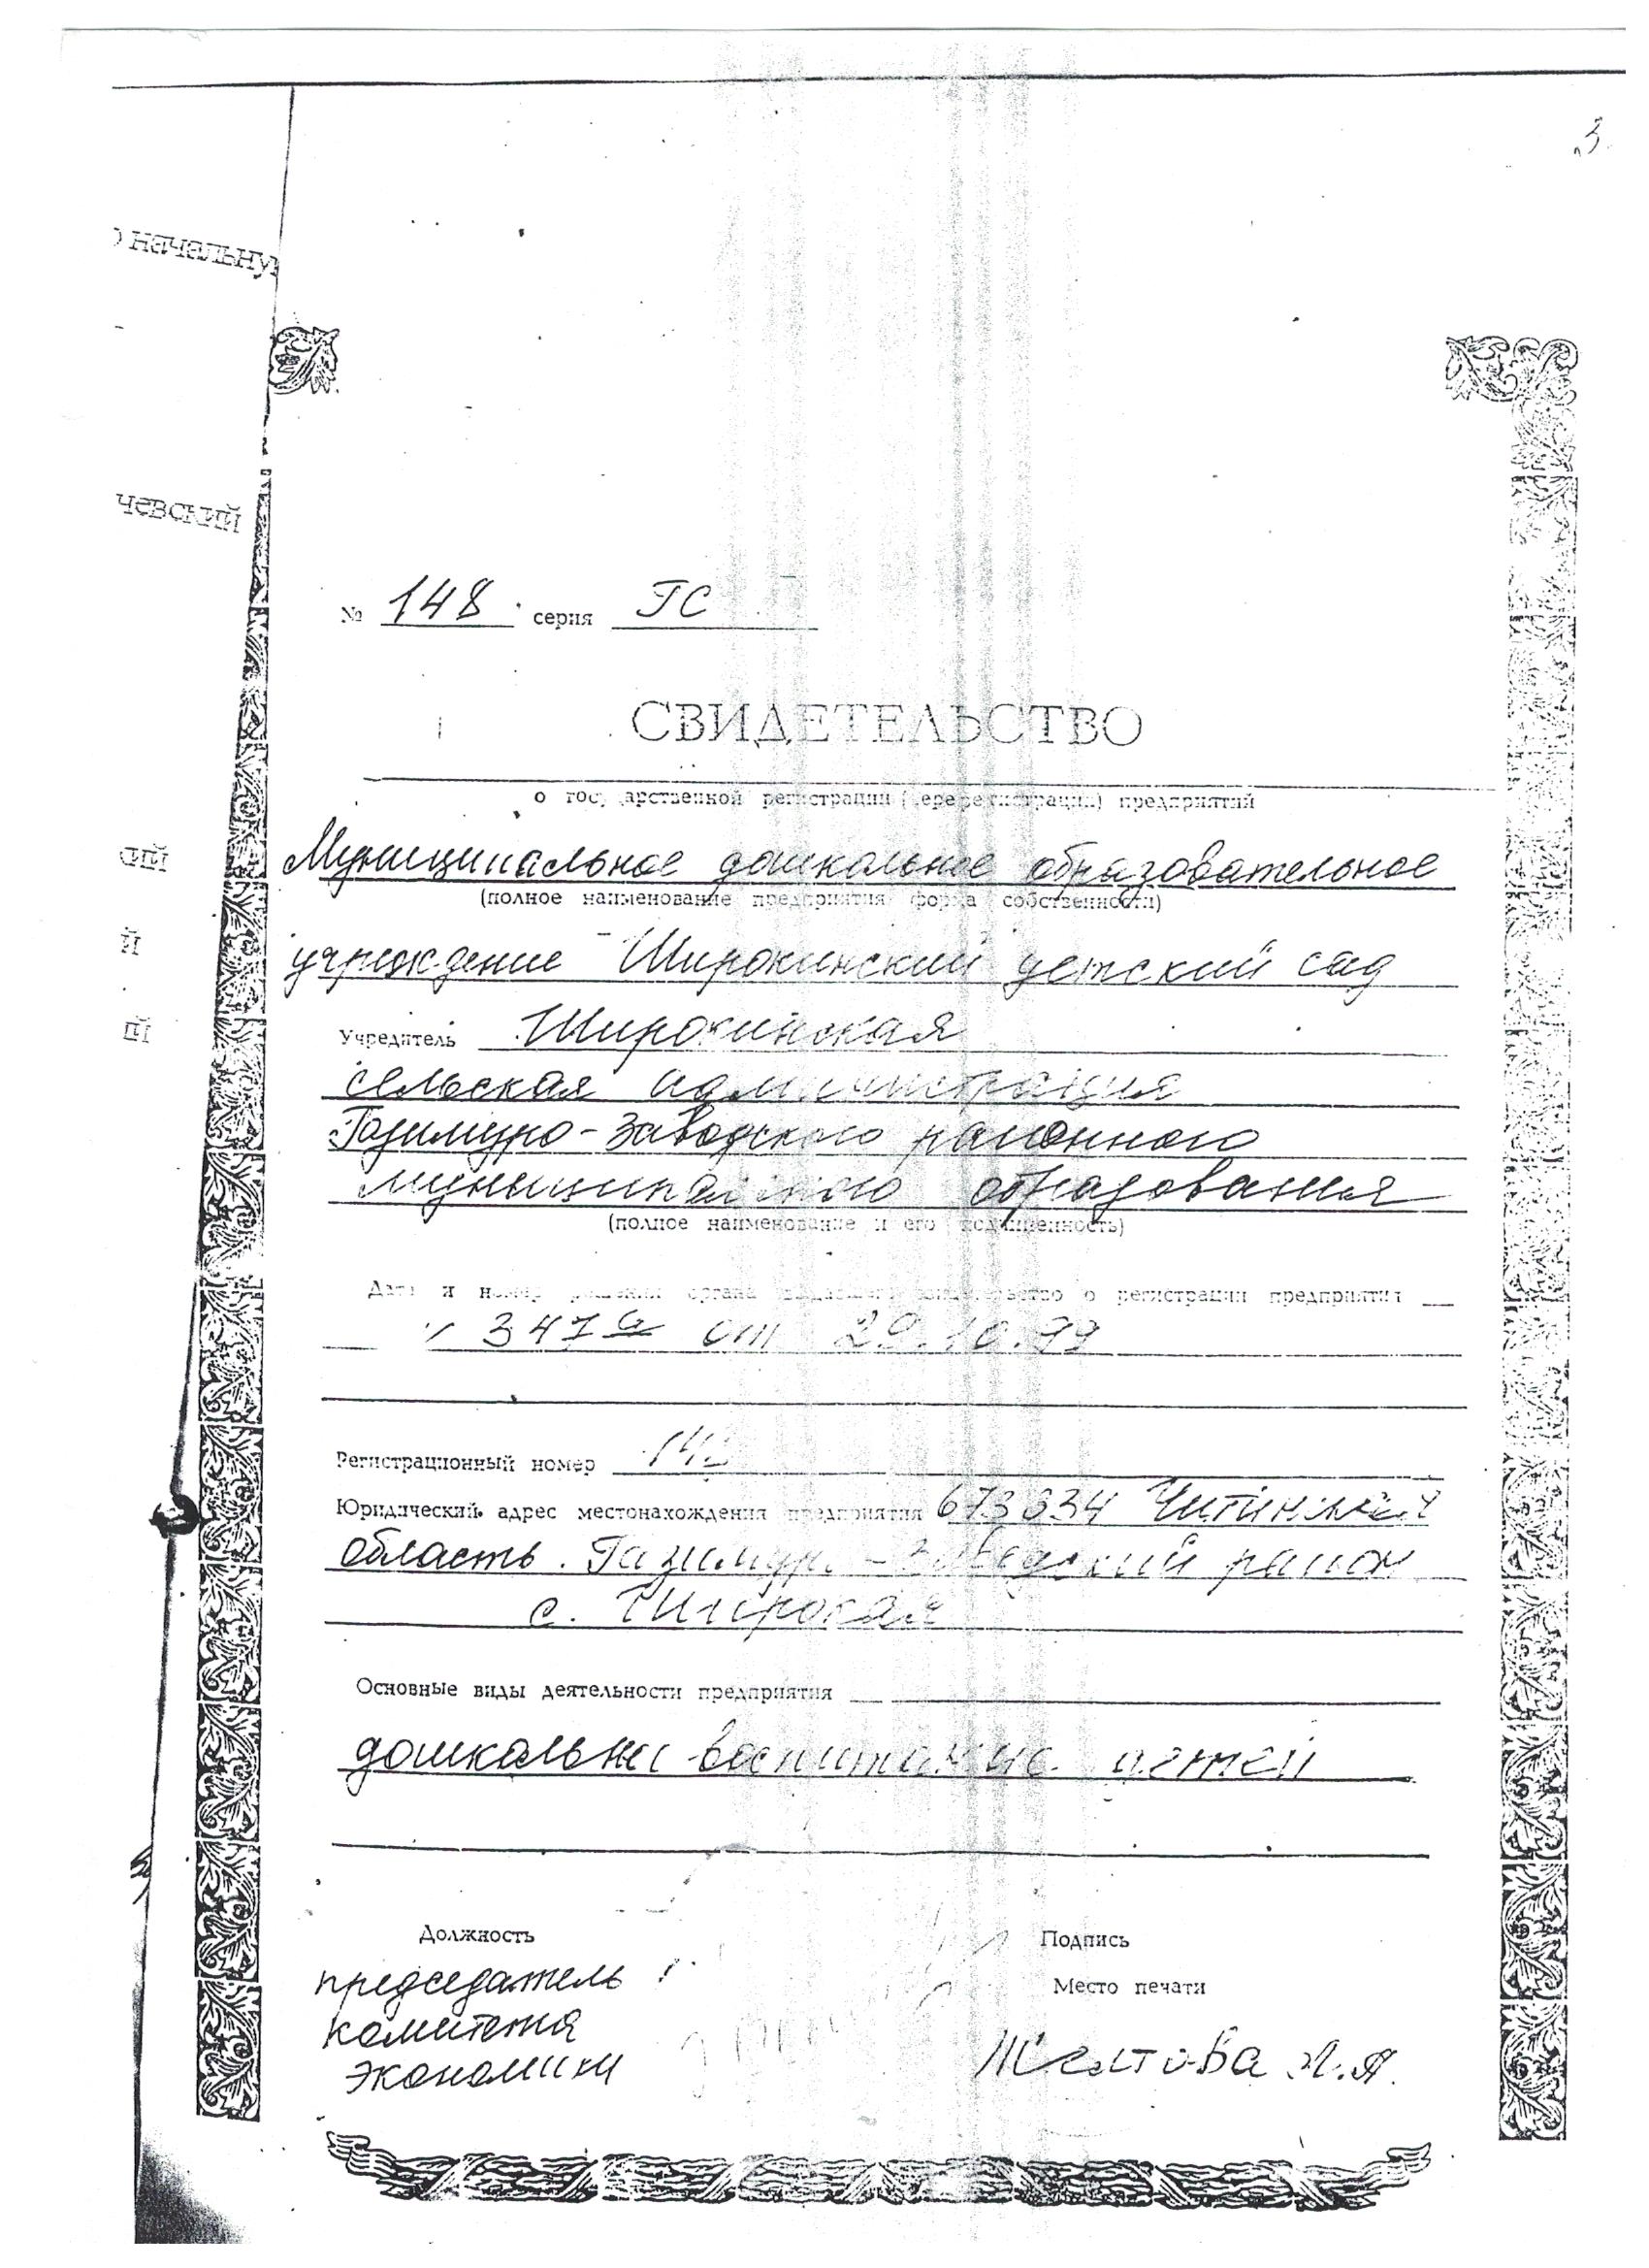 3
о начальну
чевский
кий
й
ый
№ 148 серия ГС
СВИДЕТЕЛЬСТВО
о государственной регистрации (перерегистрации) предприятий
Муниципальное дошкольное образовательное
(полное наименование предприятия форма собственности)
учреждение Широкинский детский сад
Учредитель Широкинская
сельская администрация
Газимуро-Заводского районного
муниципального образования
(полное наименование и его подчиненность)
Дата и номер решения органа выдавшего свидетельство о регистрации предприятия
347а от 29.10.99
Регистрационный номер
Юридический адрес местонахождения предприятия 673634 Читинская
область. Газимуро-Заводский район
с. Широкая
Основные виды деятельности предприятия
дошкольное воспитание детей
Должность
Подпись
председатель
Место печати
комитета
экономики
Желтова Л.А.